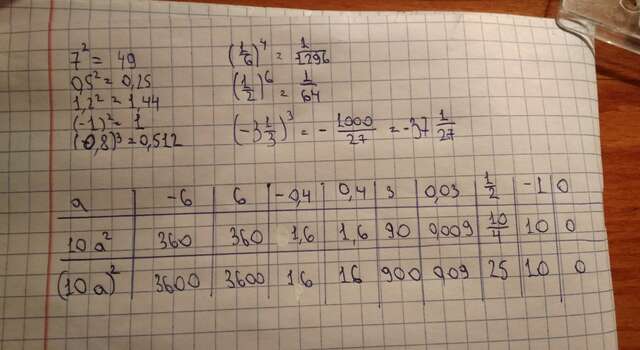 7² = 49
0,5² = 0,25
1,2² = 1,44
(-1)² = 1
(-0,8)³ = 0,512
(1/6)⁴ = 1/1296
(1/2)⁶ = 1/64
(-3 1/3)³ = - 1000/27 = -37 1/27
a | -6 | 6 | -0,4 | 0,4 | 3 | 0,03 | 1/2 | -1 | 0
10a² | 360 | 360 | 1,6 | 1,6 | 90 | 0,009 | 10/4 | 10 | 0
(10a)² | 3600 | 3600 | 16 | 16 | 900 | 0,09 | 25 | 10 | 0